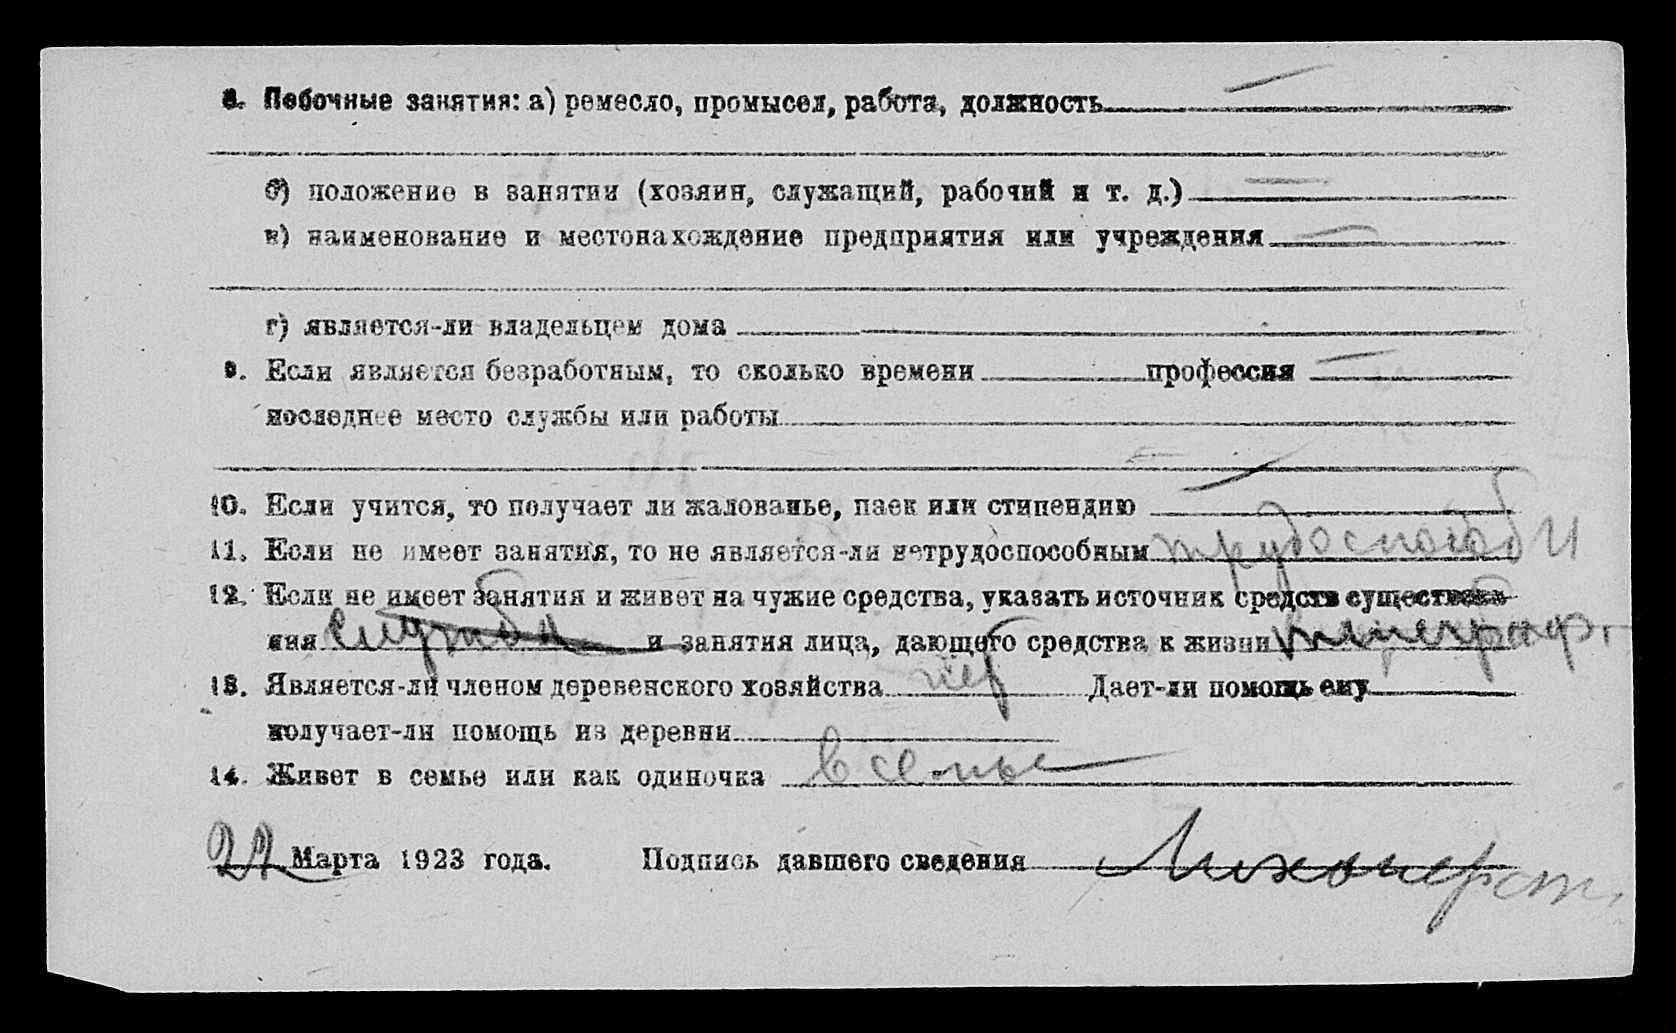 8. Побочные занятия: а) ремесло, промысел, работа, должность —
б) положение в занятии (хозяин, служащий, рабочий и т. д.) —
в) наименование и местонахождение предприятия или учреждения —
г) является-ли владельцем дома
9. Если является безработным, то сколько времени профессия —
последнее место службы или работы
10. Если учится, то получает ли жалованье, паек или стипендию —
11. Если не имеет занятия, то не является-ли нетрудоспособным трудоспособн
12. Если не имеет занятия и живет на чужие средства, указать источник средств существова-
ния служба и занятия лица, дающего средства к жизни
13. Является-ли членом деревенского хозяйства нет Дает-ли помощь ему
получает-ли помощь из деревни
14. Живет в семье или как одиночка в семье
22 Марта 1923 года. Подпись давшего сведения